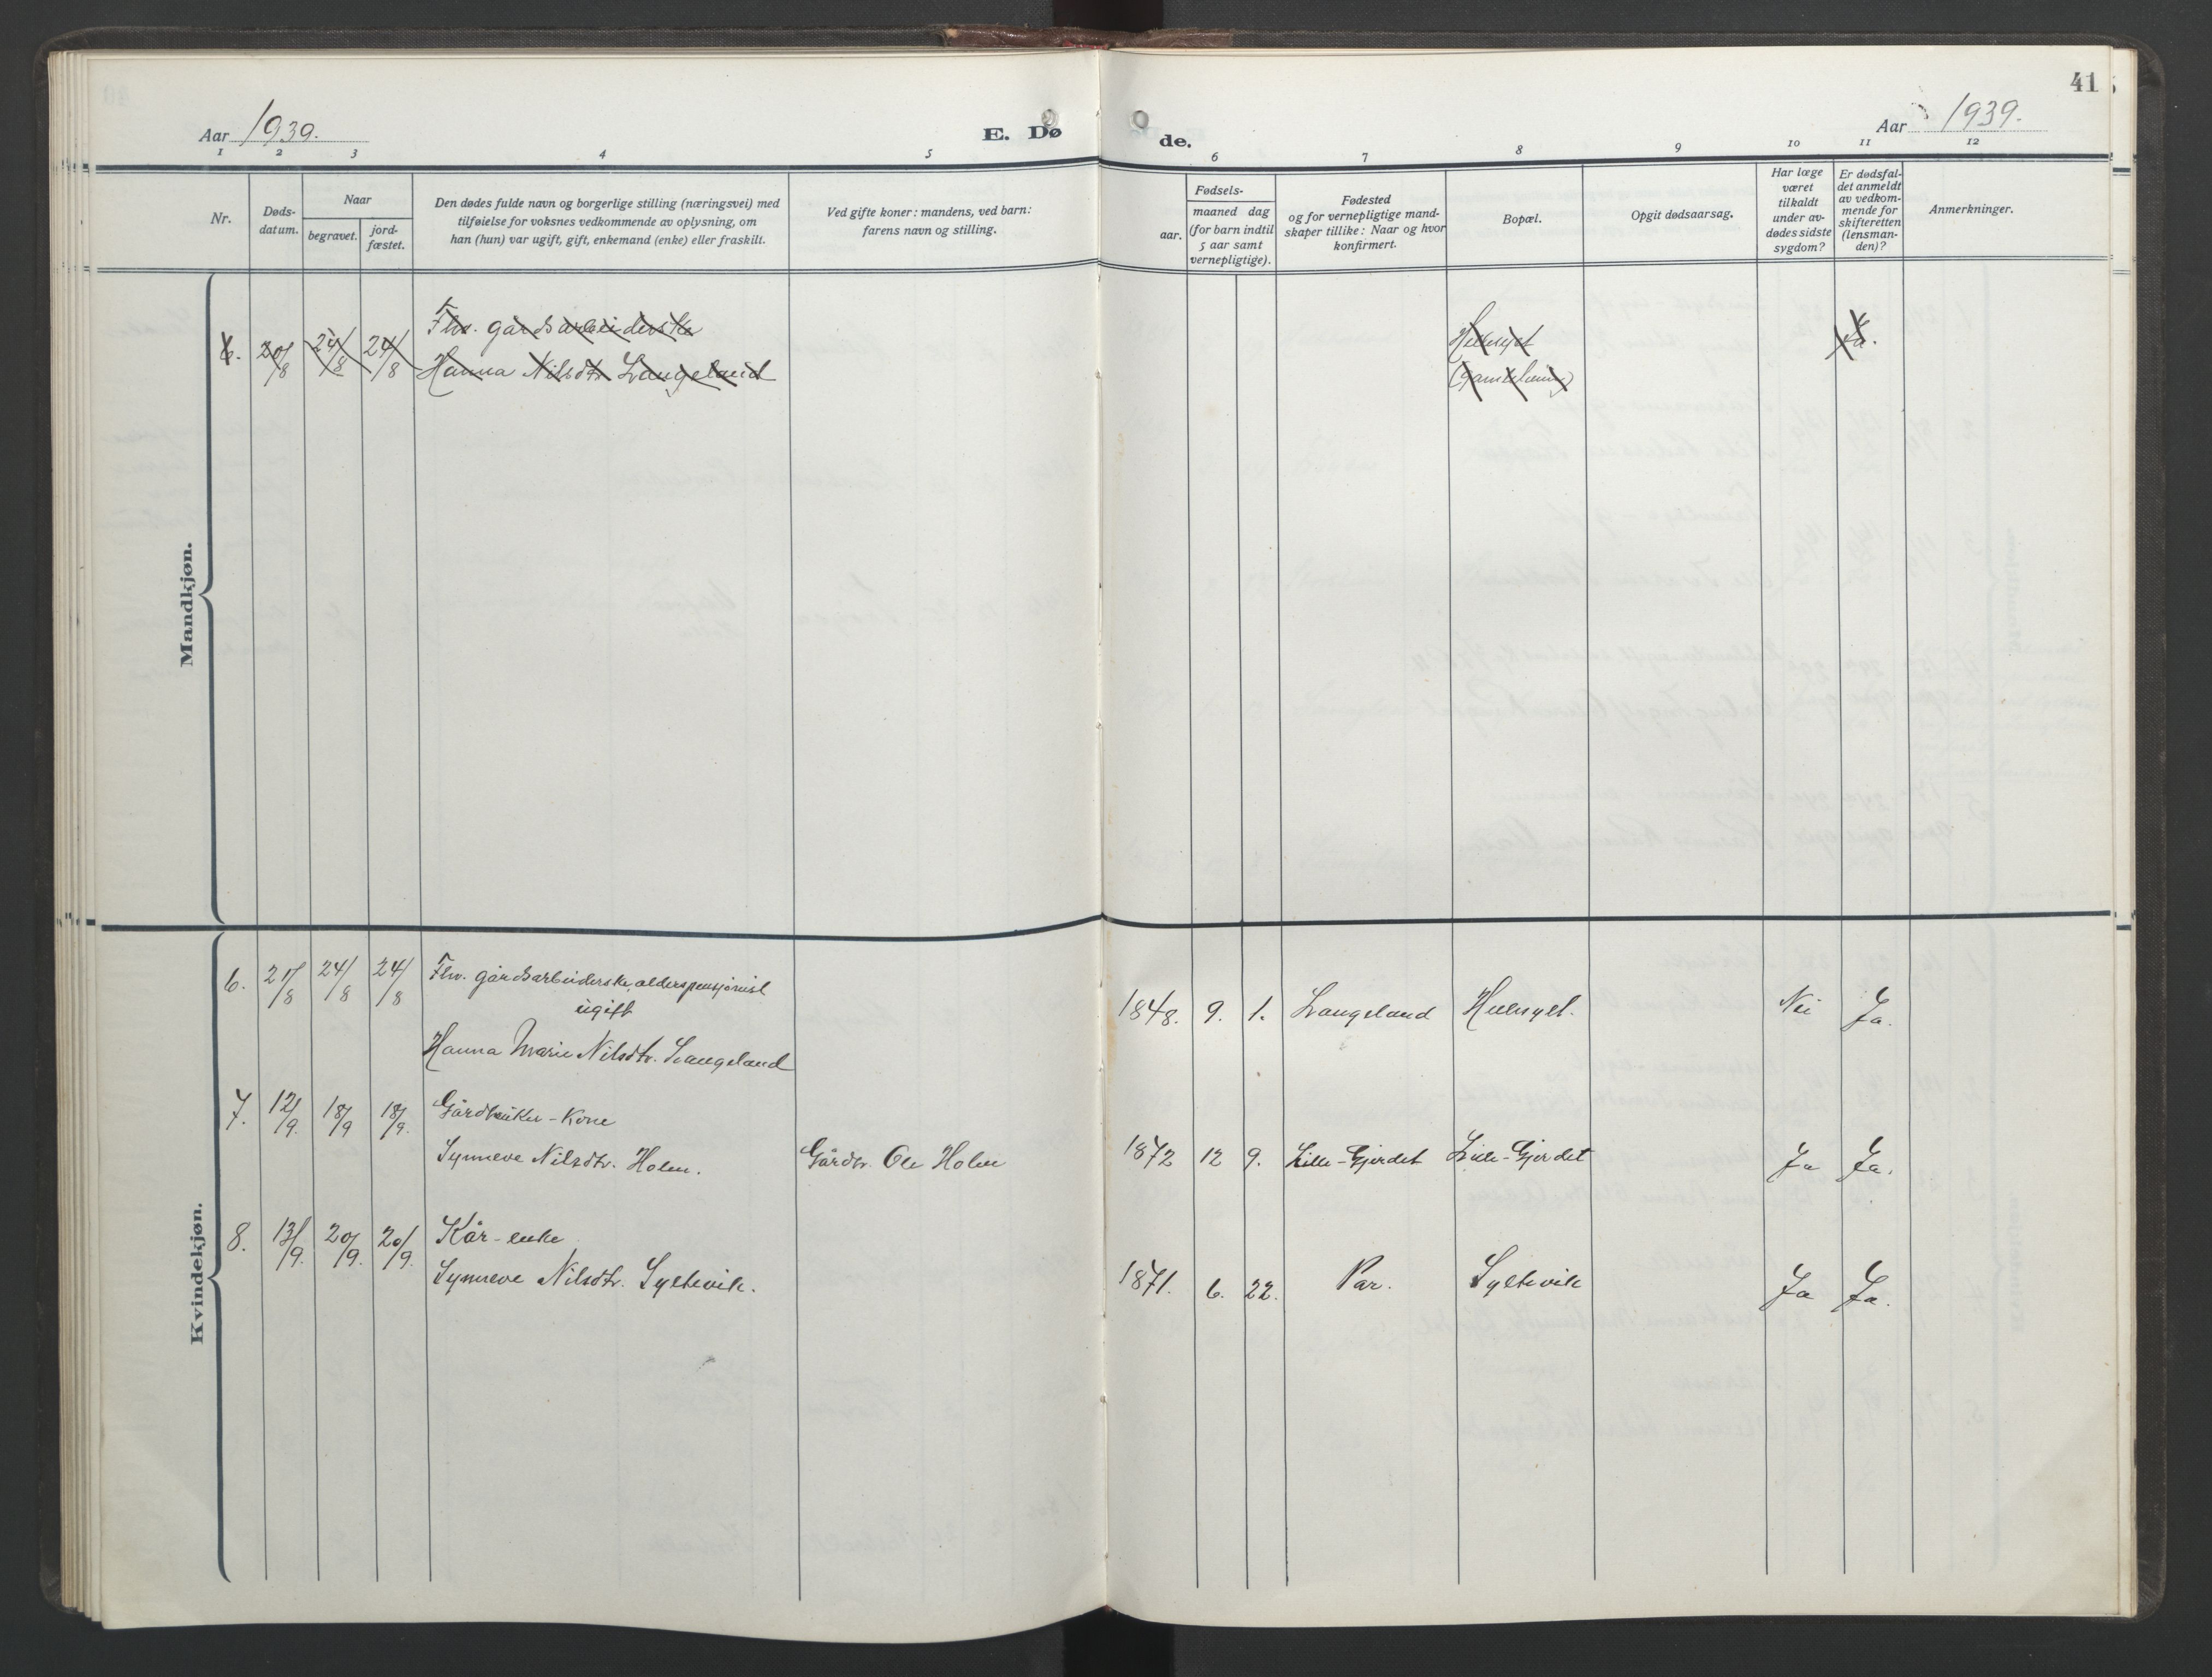 41
Aar 1939.
E. Dø
de.
Aar 1939.
1 2 3 4 5 6 7 8 9 10 11 12
Nr.
Døds-
datum.
Naar
begravet.
jord-
fæstet.
Den dødes fulde navn og borgerlige stilling (næringsvei) med
tilføielse for voksnes vedkommende av oplysning, om
han (hun) var ugift, gift, enkemand (enke) eller fraskilt.
Ved gifte koner: mandens, ved barn:
farens navn og stilling.
Fødsels-
aar.
maaned dag
(for barn indtil
5 aar samt
vernepligtige).
Fødested
og for vernepligtige mand-
skaper tillike: Naar og hvor
konfirmert.
Bopæl.
Opgit dødsaarsag.
Har læge
været
tilkaldt
under av-
dødes sidste
sygdom?
Er dødsfal-
det anmeldt
av vedkom-
mende for
skifteretten
(lensman-
den)?
Anmerkninger.
Mandkjøn.
Fhv. gårdsarbeiderske
6. 20/8 24/8 24/8 Hanna Nilsdtr. Langeland
Hellesylt
(Gamleheim)
Ja.
Kvindekjøn.
6. 21/8 24/8 24/8 Fhv. gårdsarbeiderske, alderspensjonist
ugift
Hanna Marie Nilsdtr. Langeland
1848. 9. 1. Langeland Hellesylt. Nei Ja.
7. 12/9. 18/9 18/9. Gårdbruker-Kone
Synneve Nilsdtr. Holen. Gårdbr. Ole Holen
1872 12 9. Lille-Gjerdet Lille-Gjerdet Ja Ja.
8. 13/9. 20/9. 20/9. Kår-enke
Synneve Nilsdtr. Syltevik.
1871. 6. 22. Par. Syltevik Ja Ja.